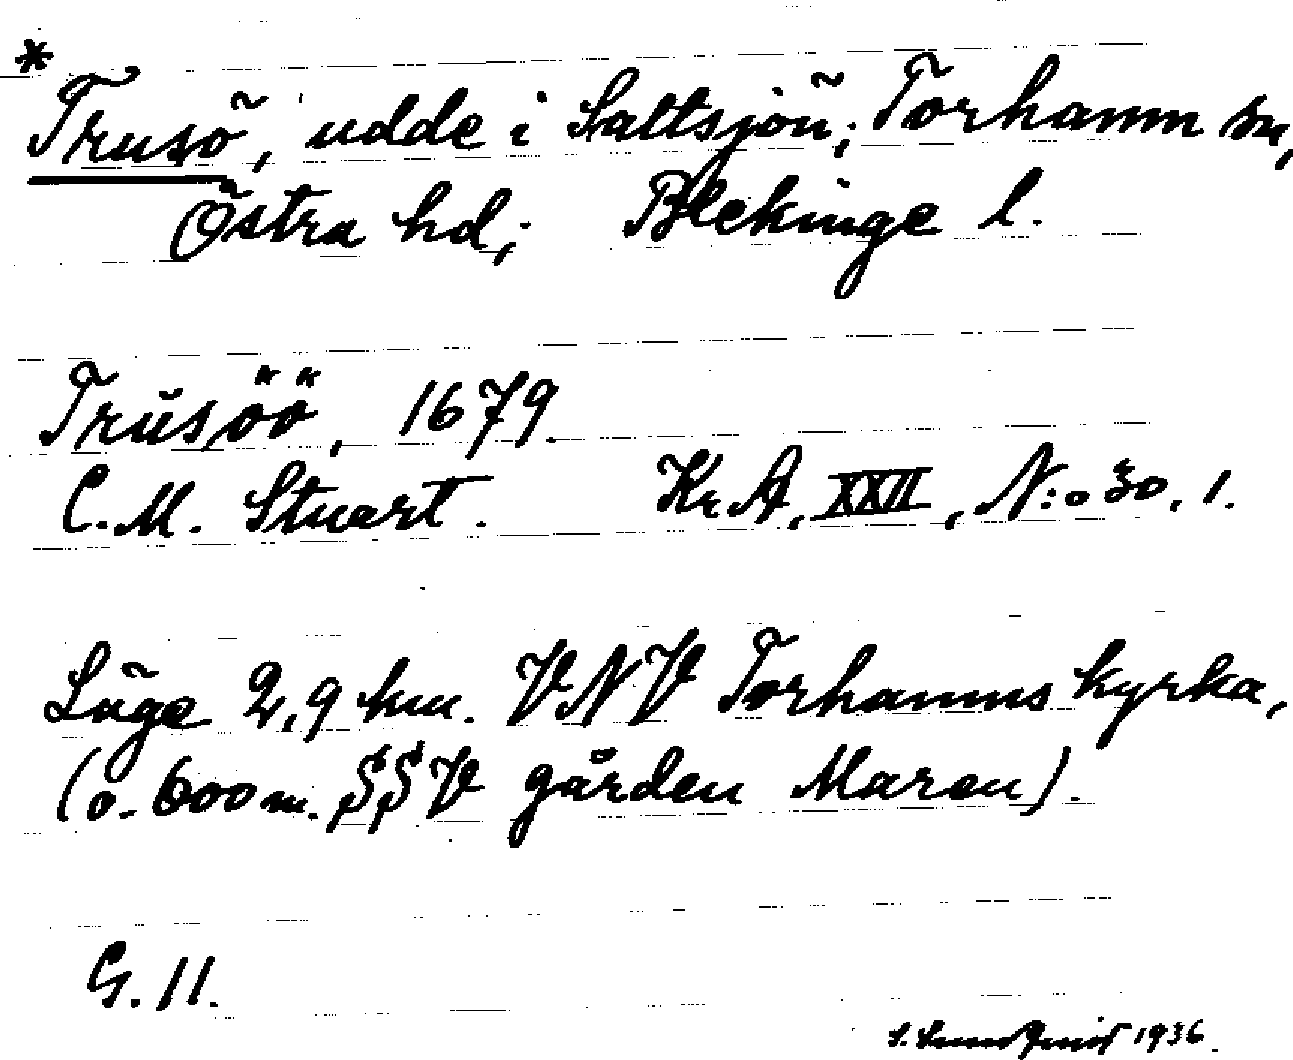 *
Trusö, udde i Saltsjön; Torhamn sn,
Östra hd; Blekinge l.
Trusöö, 1679.
C. M. Stuart. KrA, XXII, N:o 30, 1.
Läge 2,9 km. VNV Torhamns kyrka,
(o. 600 m. SSV gården Maren).
G. 11.
1936.